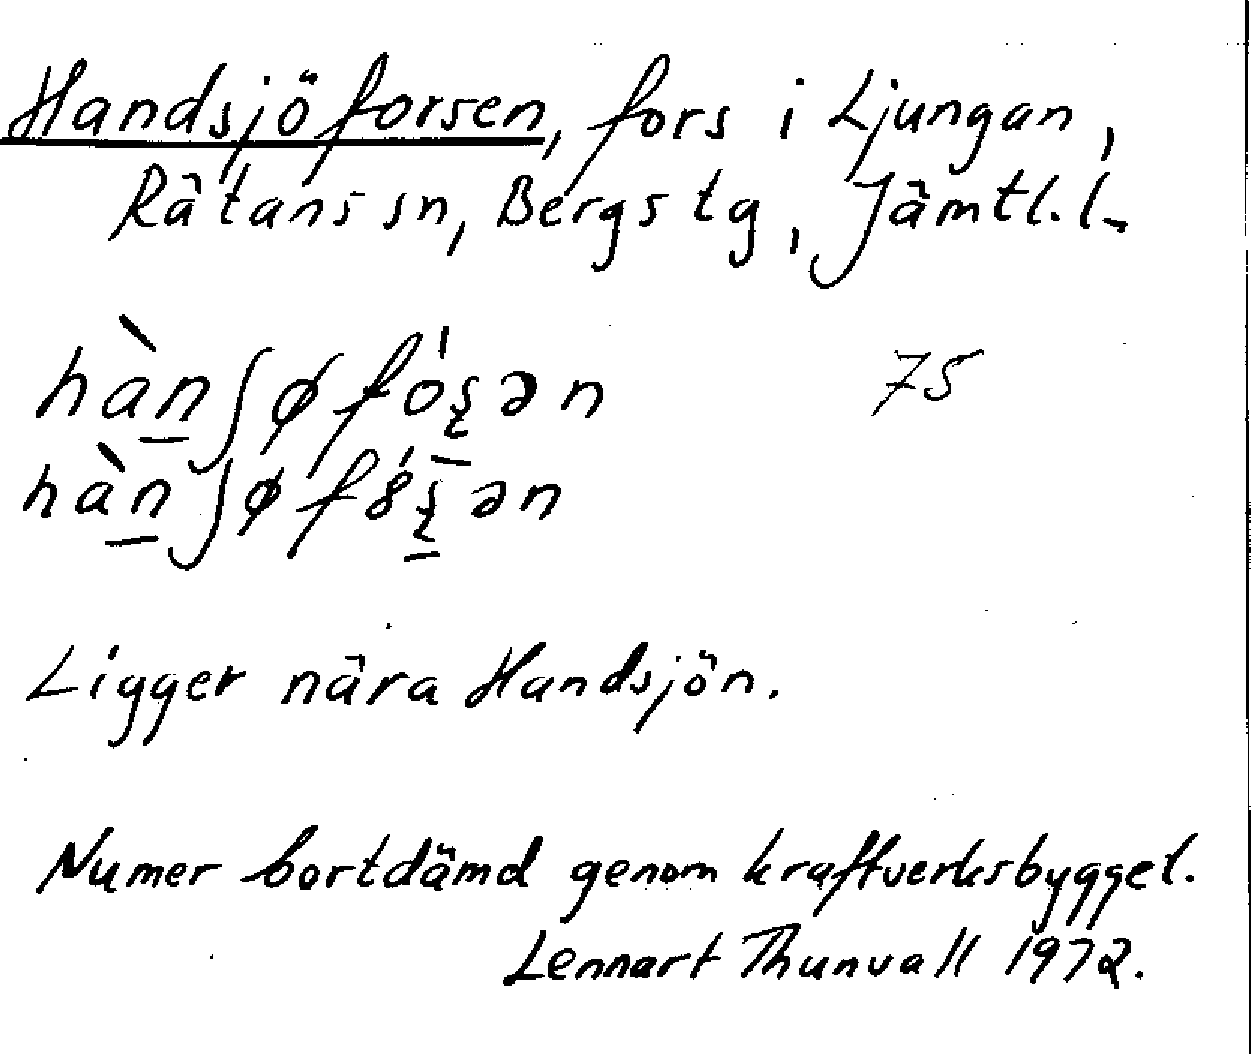 Handsjöforsen, fors i Ljungan,
Rätans sn, Bergs tg, Jämtl. l.
hàn̲ʃøfó̱ʂən 75
hàn̲ʃøf8́ʂ̱ən
Ligger nära Handsjön.
Numer bortdämd genom kraftverksbygget.
Lennart Thunvall 1972.